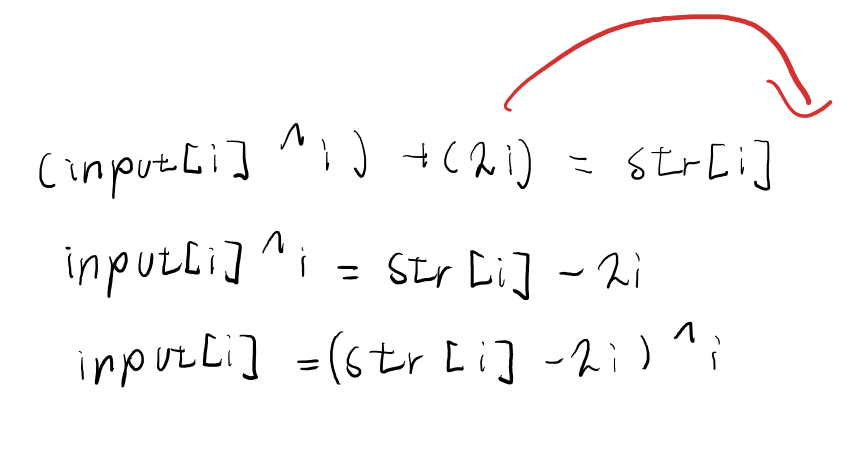 (input[i] ^ i) + (2i) = str[i]
input[i] ^ i = str[i] - 2i
input[i] = (str[i] - 2i) ^ i